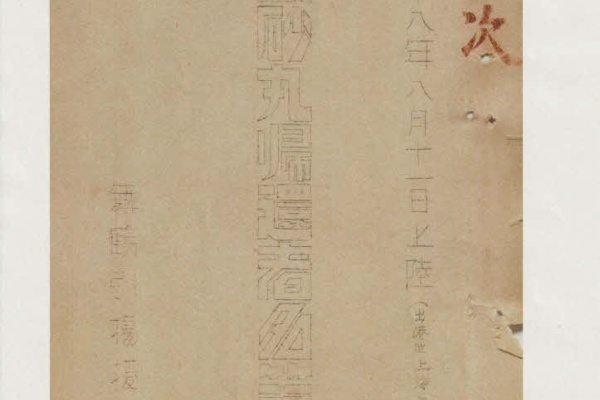 次
八年八月十一日上陸(出港地上海
砂丸帰還者名
舞鶴引揚援